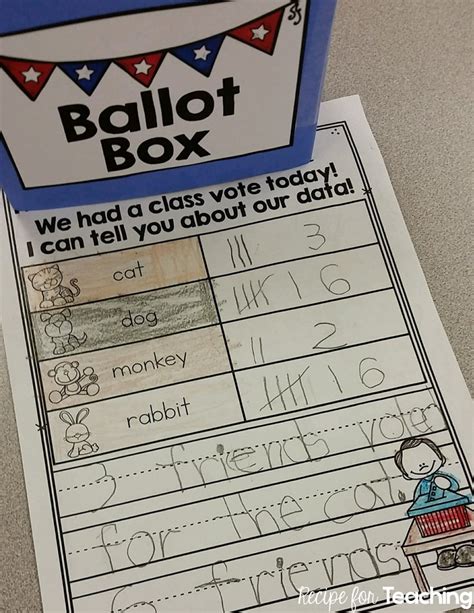 SJ
Ballot
Box
We had a class vote today!
I can tell you about our data!
cat ||| 3
dog 𝍸 | 6
monkey || 2
rabbit 𝍸 | 6
3 friends vote
for the cat.
6 friends
Recipe for Teaching